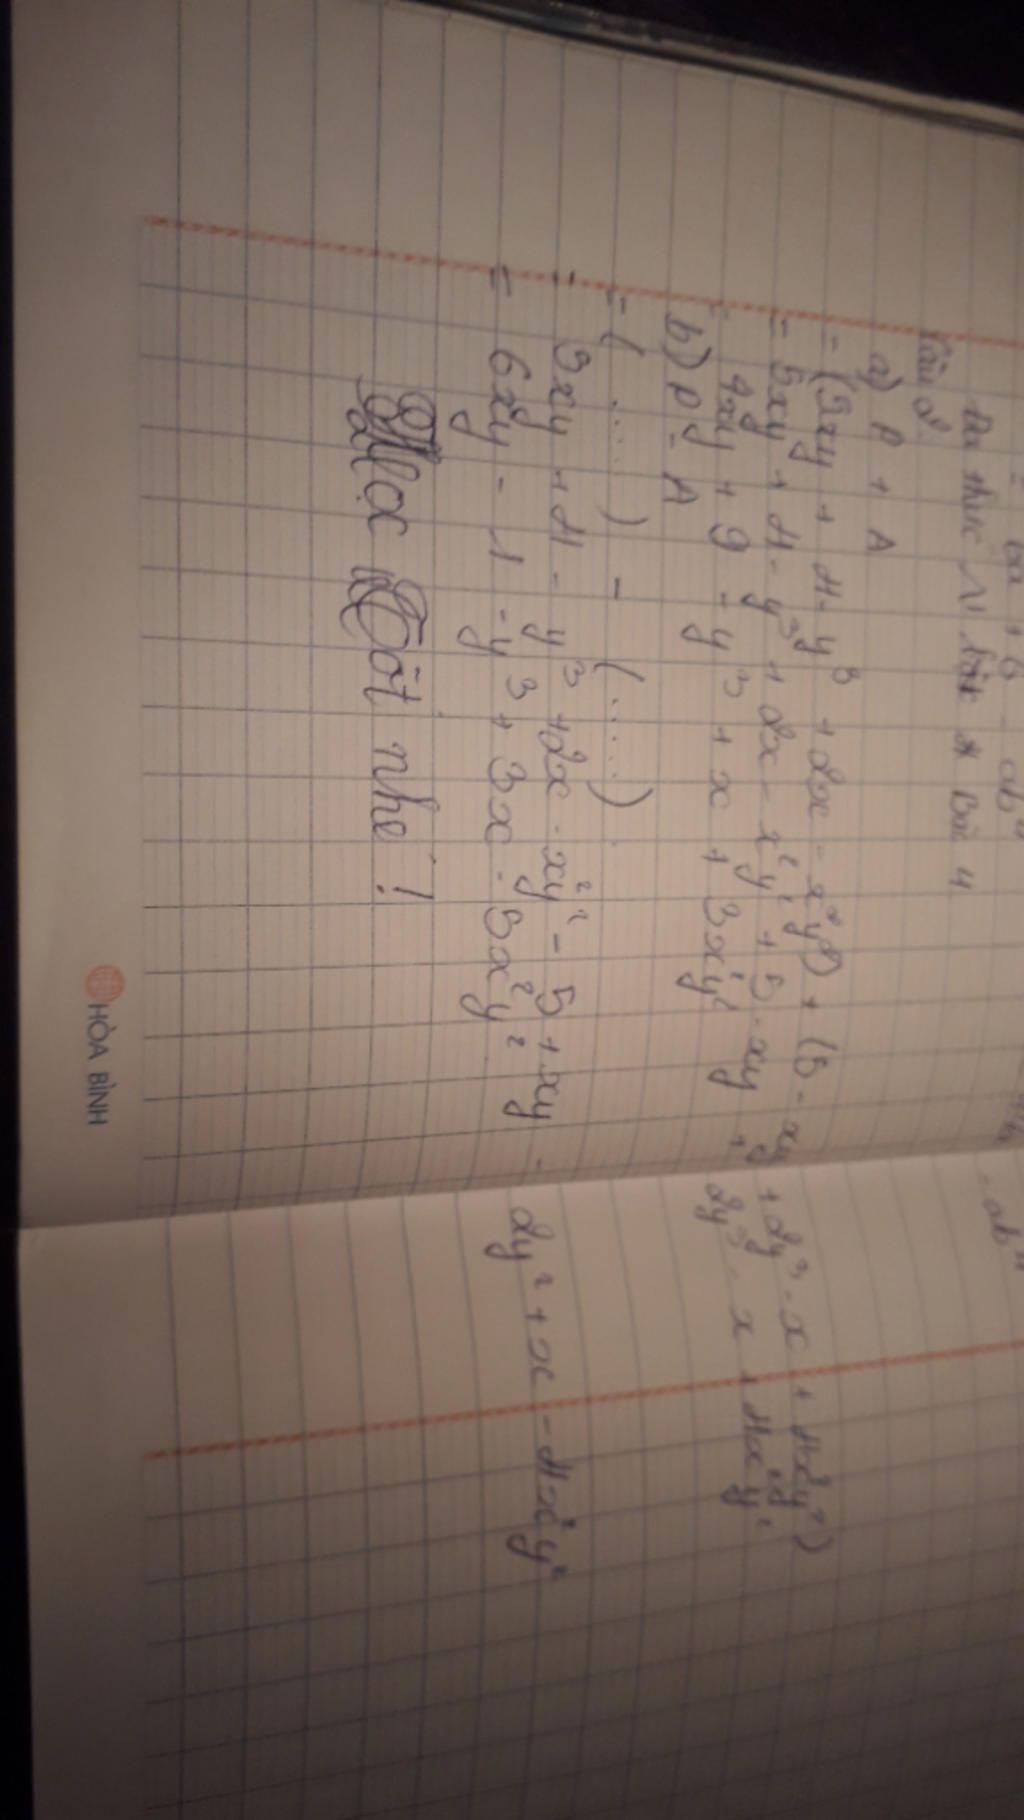 Đa thức N bậc 4
Câu 2
a) P + A
= (5xy + 4 - y³ + 2x - x²y²) + (5 - xy + 2y³ - x + 4x²y²)
= 5xy + 4 - y³ + 2x - x²y² + 5 - xy + 2y³ - x + 4x²y²
4xy + 9 - y³ + x + 3x²y²
b) P - A
= (.....) - (.....)
= 5xy + 4 - y³ + 2x - x²y² - 5 + xy - 2y² + x - 4x²y²
= 6xy - 1 - y³ + 3x - 5x²y²
Học tốt nhé!
HÒA BÌNH